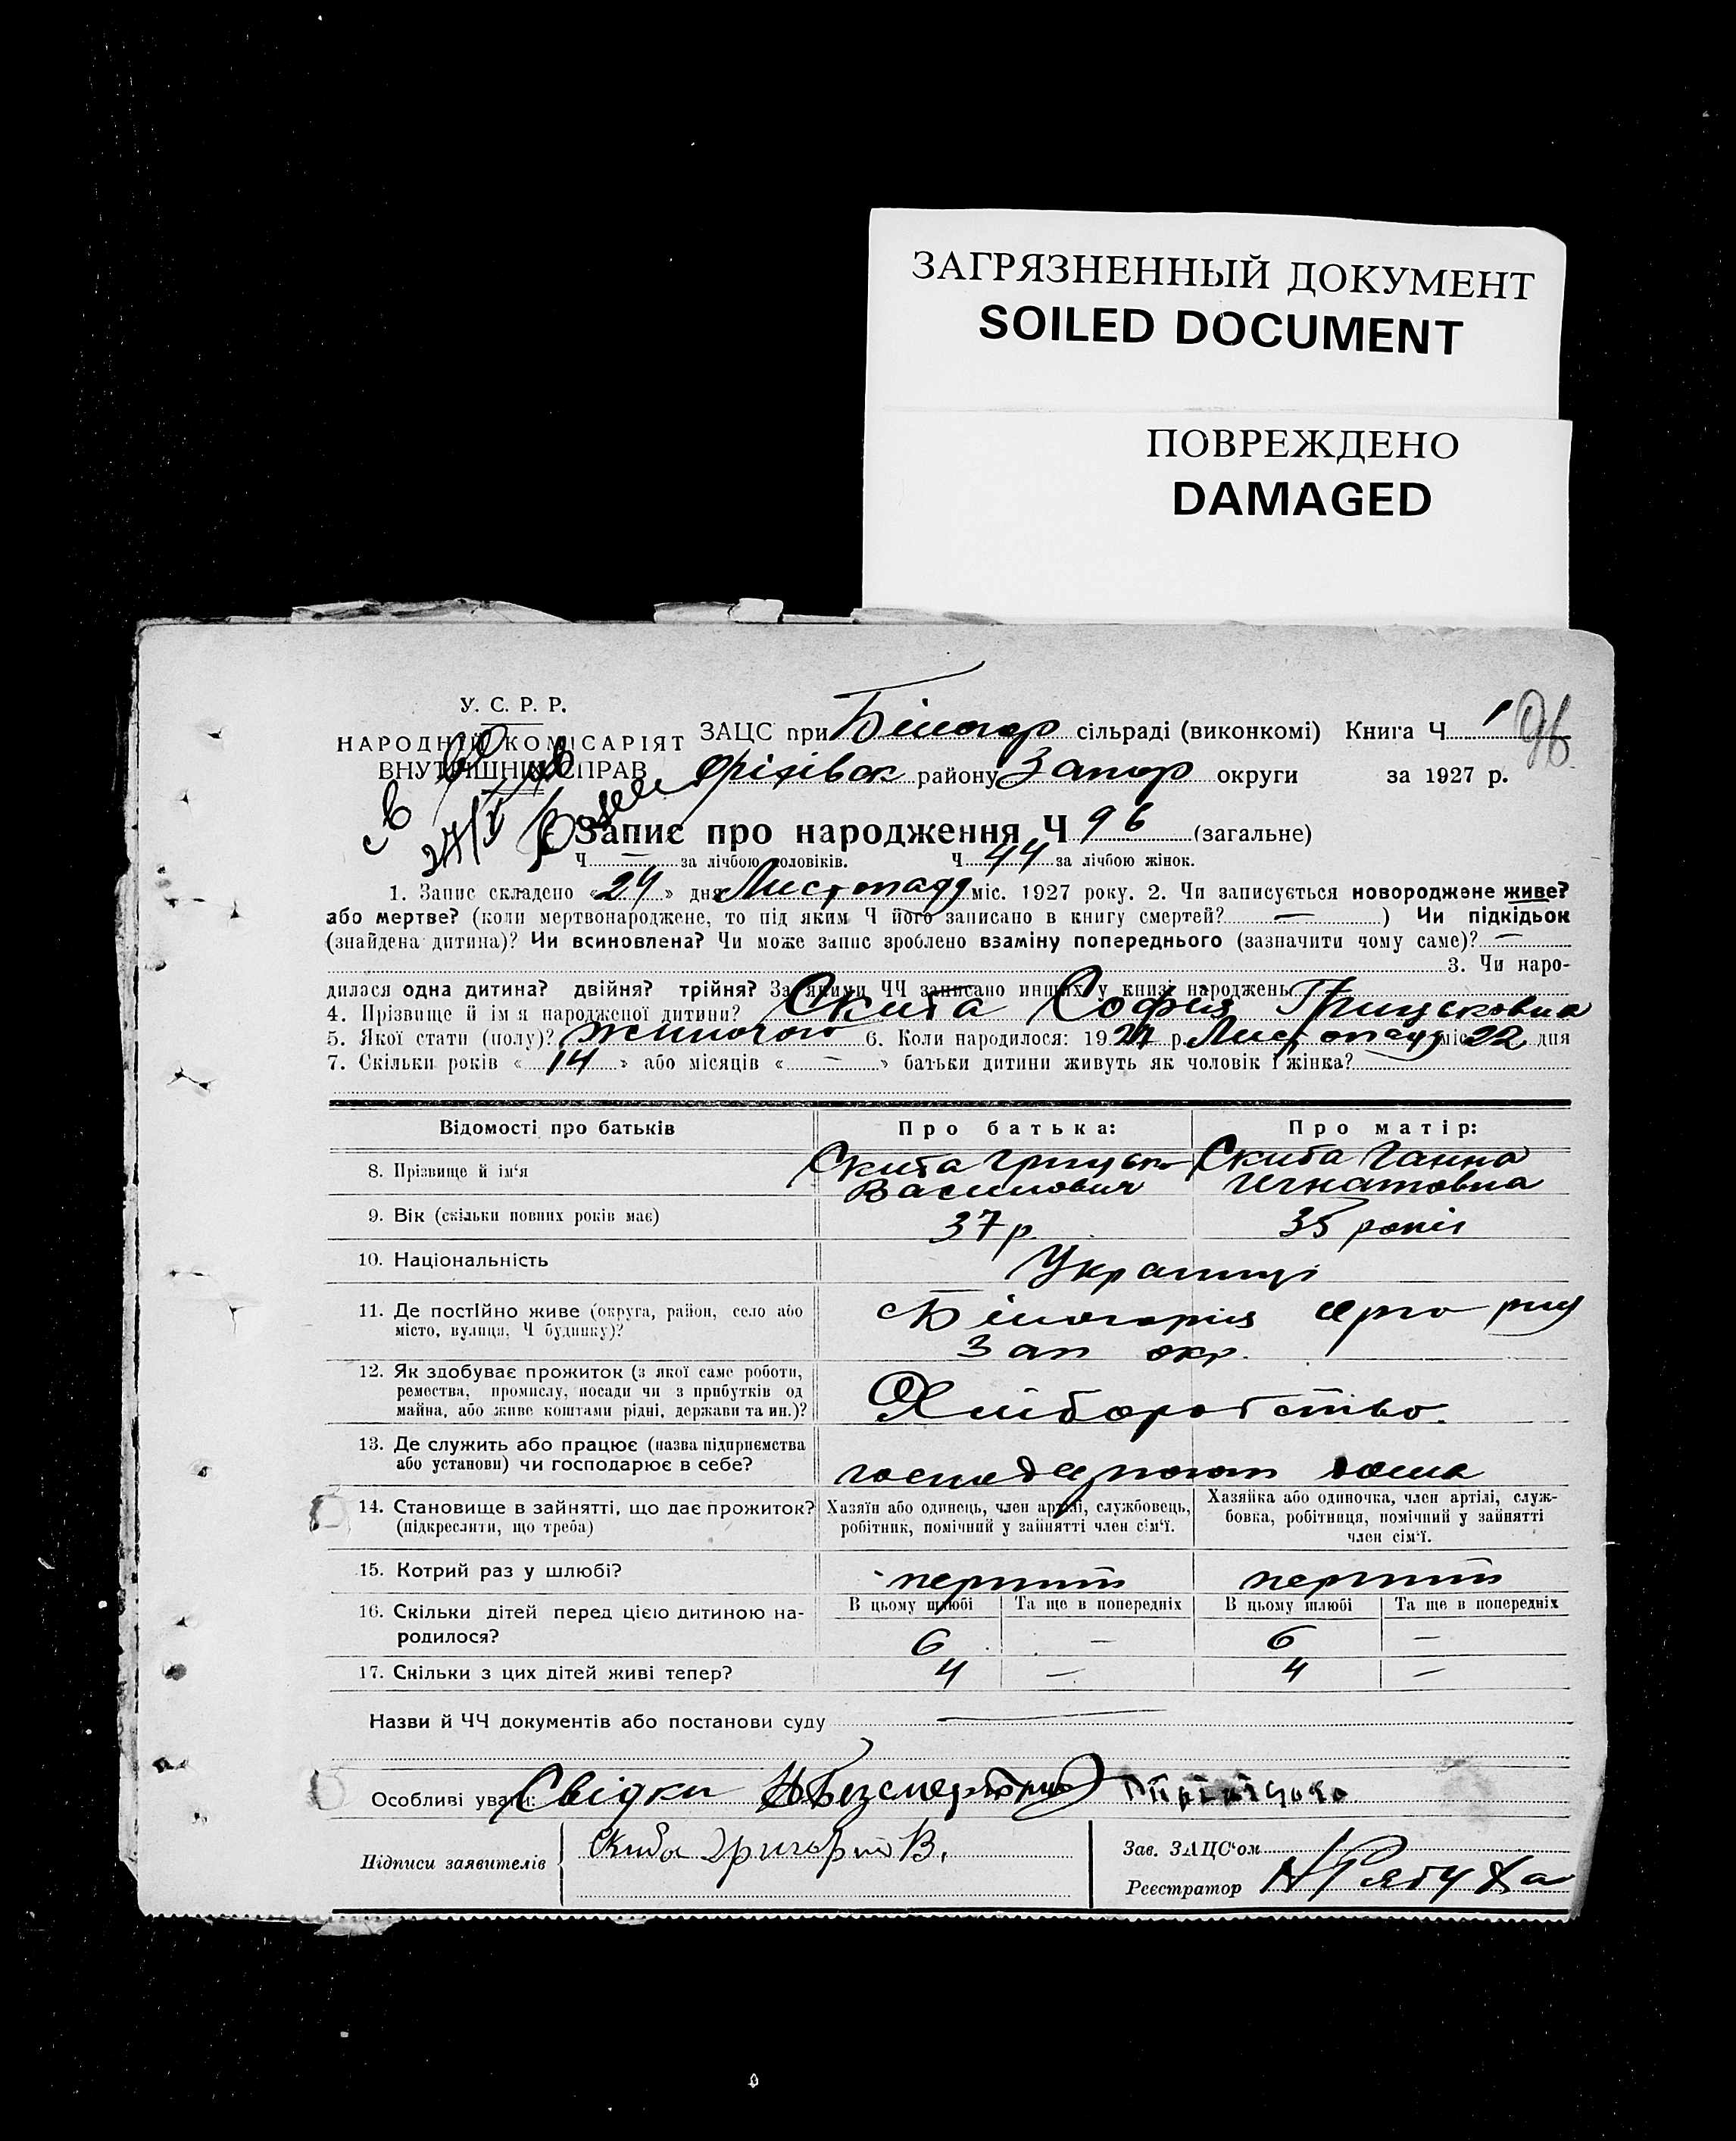 ЗАГРЯЗНЕННЫЙ ДОКУМЕНТ
SOILED DOCUMENT
ПОВРЕЖДЕНО
DAMAGED
У. С. Р. Р.
НАРОДНІЙ КОМІСАРІЯТ
ВНУТРІШНІХ СПРАВ
ЗАЦС при Білогор сільраді (виконкомі) Книга Ч 1 96
Оріхівск району Запор округи за 1927 р.
27/V
Запис про народження Ч 96 (загальне)
Ч — за лічбою чоловіків. Ч 44 за лічбою жінок.
1. Запис складено «24» дня Листопаду міс. 1927 року. 2. Чи записується новороджене живе?
або мертве? (коли мертвонароджене, то під яким Ч його записано в книгу смертей? — ) Чи підкідьок
(знайдена дитина)? Чи всиновлена? Чи може запис зроблено взаміну попереднього (зазначити чому саме)? —
3. Чи наро-
дилася одна дитина? двійня? трійня? За якими ЧЧ записано инших у книзі народжень
4. Прізвище й ім'я народженої дитини? Скиба София Грицьковна
5. Якої стати (полу)? жиночого 6. Коли народилося: 1927 р. Листопаду міс. 22 дня
7. Скільки років «14» або місяців « — » батьки дитини живуть як чоловік і жінка? —
Відомості про батьків Про батька: Про матір:
8. Прізвище й ім'я Скиба Грицько Скиба Ганна
Василович Игнатовна
9. Вік (скільки повних років має) 37 р. 35 років
10. Національність Українці
11. Де постійно живе (округа, район, село або
місто, вулиця, Ч будинку)?
Білогорія
Зап окр.
12. Як здобуває прожиток (з якої саме роботи,
ремества, промислу, посади чи з прибутків од
майна, або живе коштами рідні, держави та ин.)?
Хліборобство.
13. Де служить або працює (назва підприємства
або установи) чи господарює в себе?
господарюют дома
14. Становище в зайнятті, що дає прожиток?
(підкреслити, що треба)
Хазяїн або одинець, член артілі, службовець,
робітник, помічний у зайнятті член сім'ї.
Хазяйка або одиночка, член артілі, служ-
бовка, робітниця, помічний у зайнятті
член сім'ї.
15. Котрий раз у шлюбі? перший перший
В цьому шлюбі Та ще в попередніх В цьому шлюбі Та ще в попередніх
16. Скільки дітей перед цією дитиною на-
родилося?
6 — 6 —
17. Скільки з цих дітей живі тепер? 4 — 4 —
Назви й ЧЧ документів або постанови суду —
Особливі уваги: Свідки
Підписи заявителів Скиба Григорий В.
Зав. ЗАЦС'ом
Реєстратор